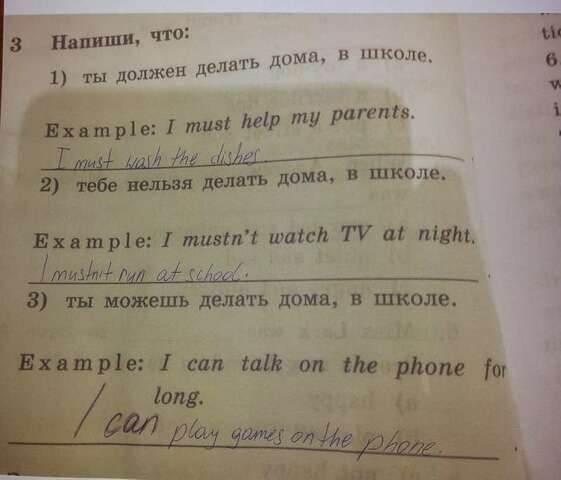 3 Напиши, что:
1) ты должен делать дома, в школе.
Example: I must help my parents.
I must wash the dishes.
2) тебе нельзя делать дома, в школе.
Example: I mustn't watch TV at night.
I mustn't run at school.
3) ты можешь делать дома, в школе.
Example: I can talk on the phone for
long.
I can play games on the phone.